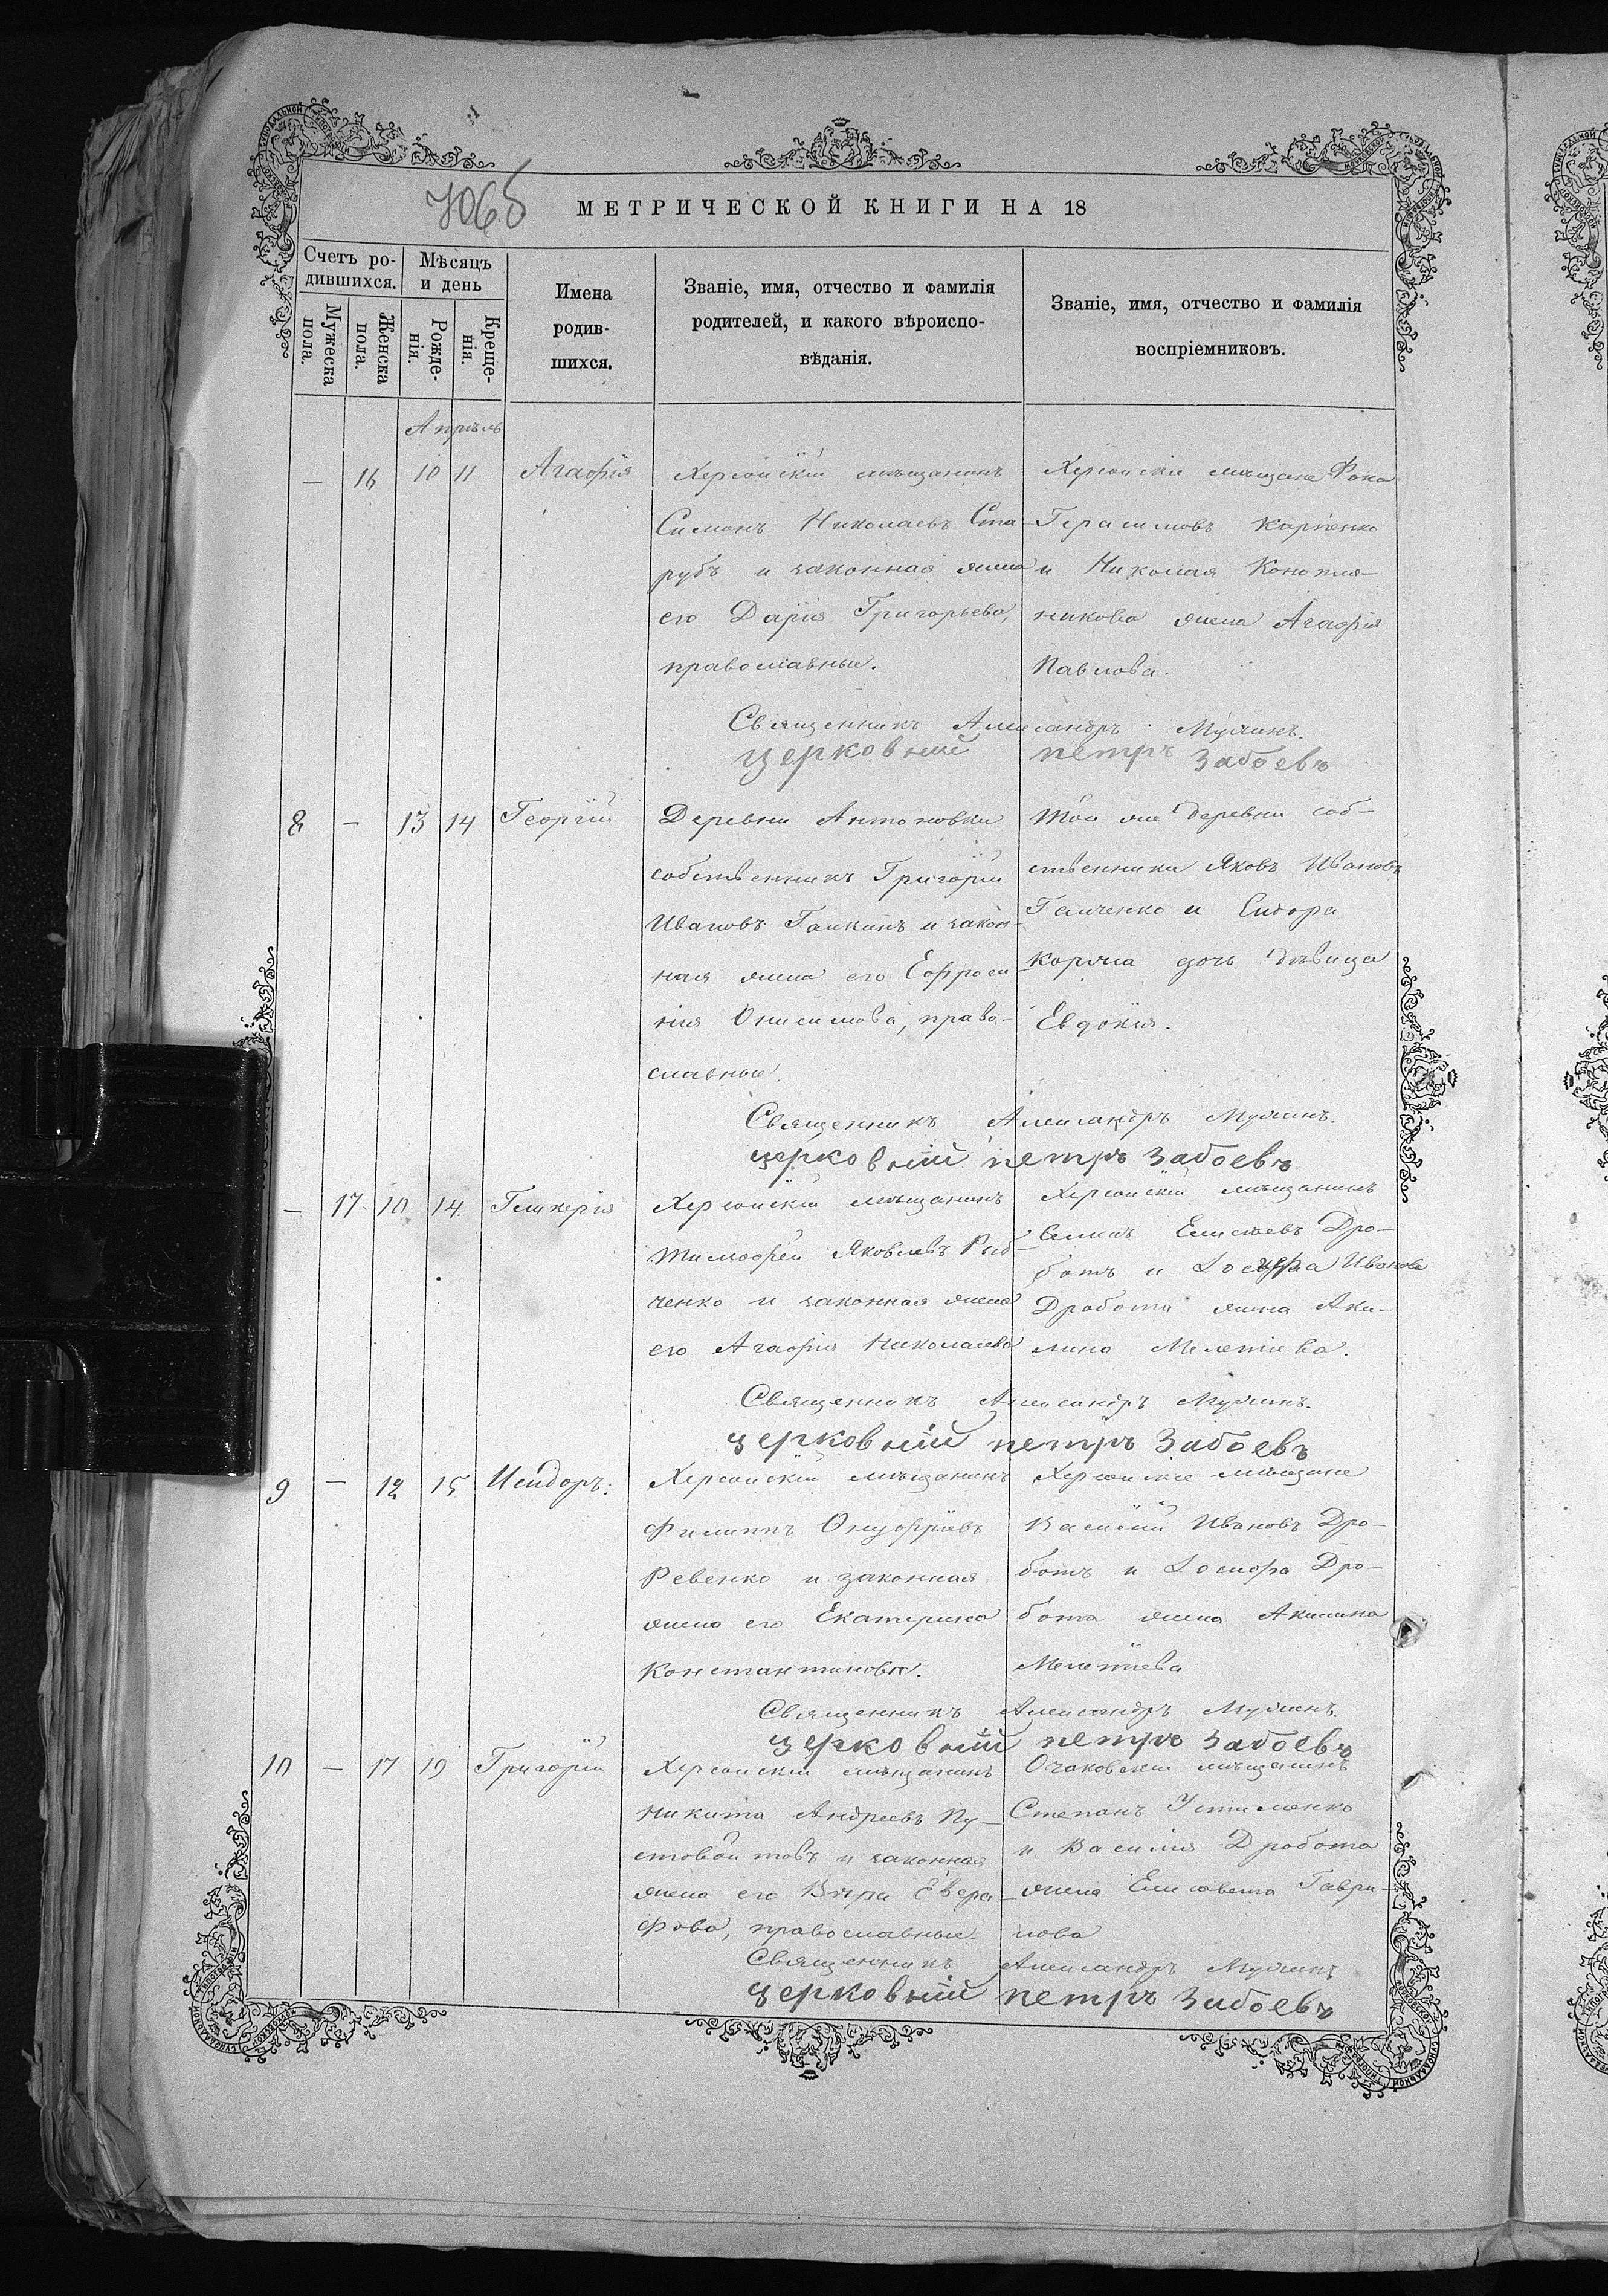 706б
МЕТРИЧЕСКОЙ КНИГИ НА 18
Счетъ ро-
дившихся.
Мужеска
пола.
Женска
пола.
Мѣсяцъ
и день
Рожде-
нія.
Креще-
нія.
Имена
родив-
шихся.
Званіе, имя, отчество и фамилія
родителей, и какого вѣроиспо-
вѣданія.
Званіе, имя, отчество и фамилія
воспріемниковъ.
Апрѣль
— 16 10 11 Агафія
Херсонскій мѣщанинъ
Симонъ Николаевъ Ста-
рубъ и законная жена
его Дарія Григорьева,
православные.
Херсонскіе мѣщане Фока
Герасимовъ Карпенко
и Николая Конопля-
никова жена Агафія
Павлова.
Священникъ Александръ
церковный петръ Забоевъ
8 — 13 14 Георгій
Деревни Антоновки
собственникъ Григорій
Ивановъ Галкинъ и закон-
ная жена его Ефроси-
нія Онисимова, право-
славные.
Той же деревни соб-
ственники Яковъ Ивановъ
Галченко и Сидора
Коржа дочь дѣвица
Евдокія.
Священникъ Александръ
церковный петръ Забоевъ
— 17 10 14 Гликерія
Херсонскій мѣщанинъ
Тимофей Яковлевъ Ряб-
ченко и законная жена
его Агафія Николаева
Херсонскій мѣщанинъ
Елисѣевъ Дро-
ботъ и Иванова
Дробота жена Аки-
лина Мелетіева.
Священникъ Александръ
церковный петръ Забоевъ
9 — 12 15 Исидоръ.
Херсонскій мѣщанинъ
Филиппъ Онуфріевъ
Ревенко и законная
жена его Екатерина
Константинова.
Херсонскіе мѣщане
Василій Ивановъ Дро-
ботъ и Дро-
бота жена Акилина
Мелетіева
Священникъ Александръ
церковный петръ Забоевъ
10 — 17 19 Григорій
Херсонскій мѣщанинъ
Никита Андреевъ Пу-
стовойтовъ и законная
жена его Вѣра Евгра-
фова, православные.
Очаковскій мѣщанинъ
Степанъ Устименко
и Василія Дробота
жена Елисавета Гаври-
лова
Священникъ Александръ
церковный петръ Забоевъ